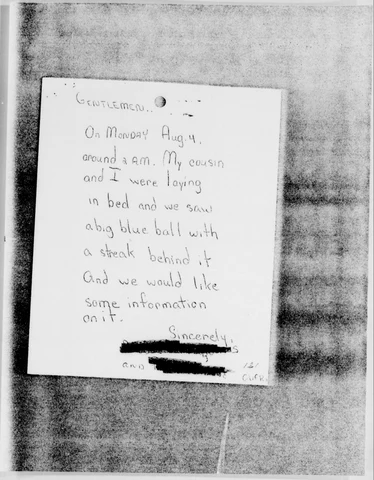 GENTLEMEN..
On MONDAY Aug. 4,
around 2 AM. My cousin
and I were laying
in bed and we saw
a big blue ball with
a streak behind it
And we would like
some information
on it.
Sincerely,
and